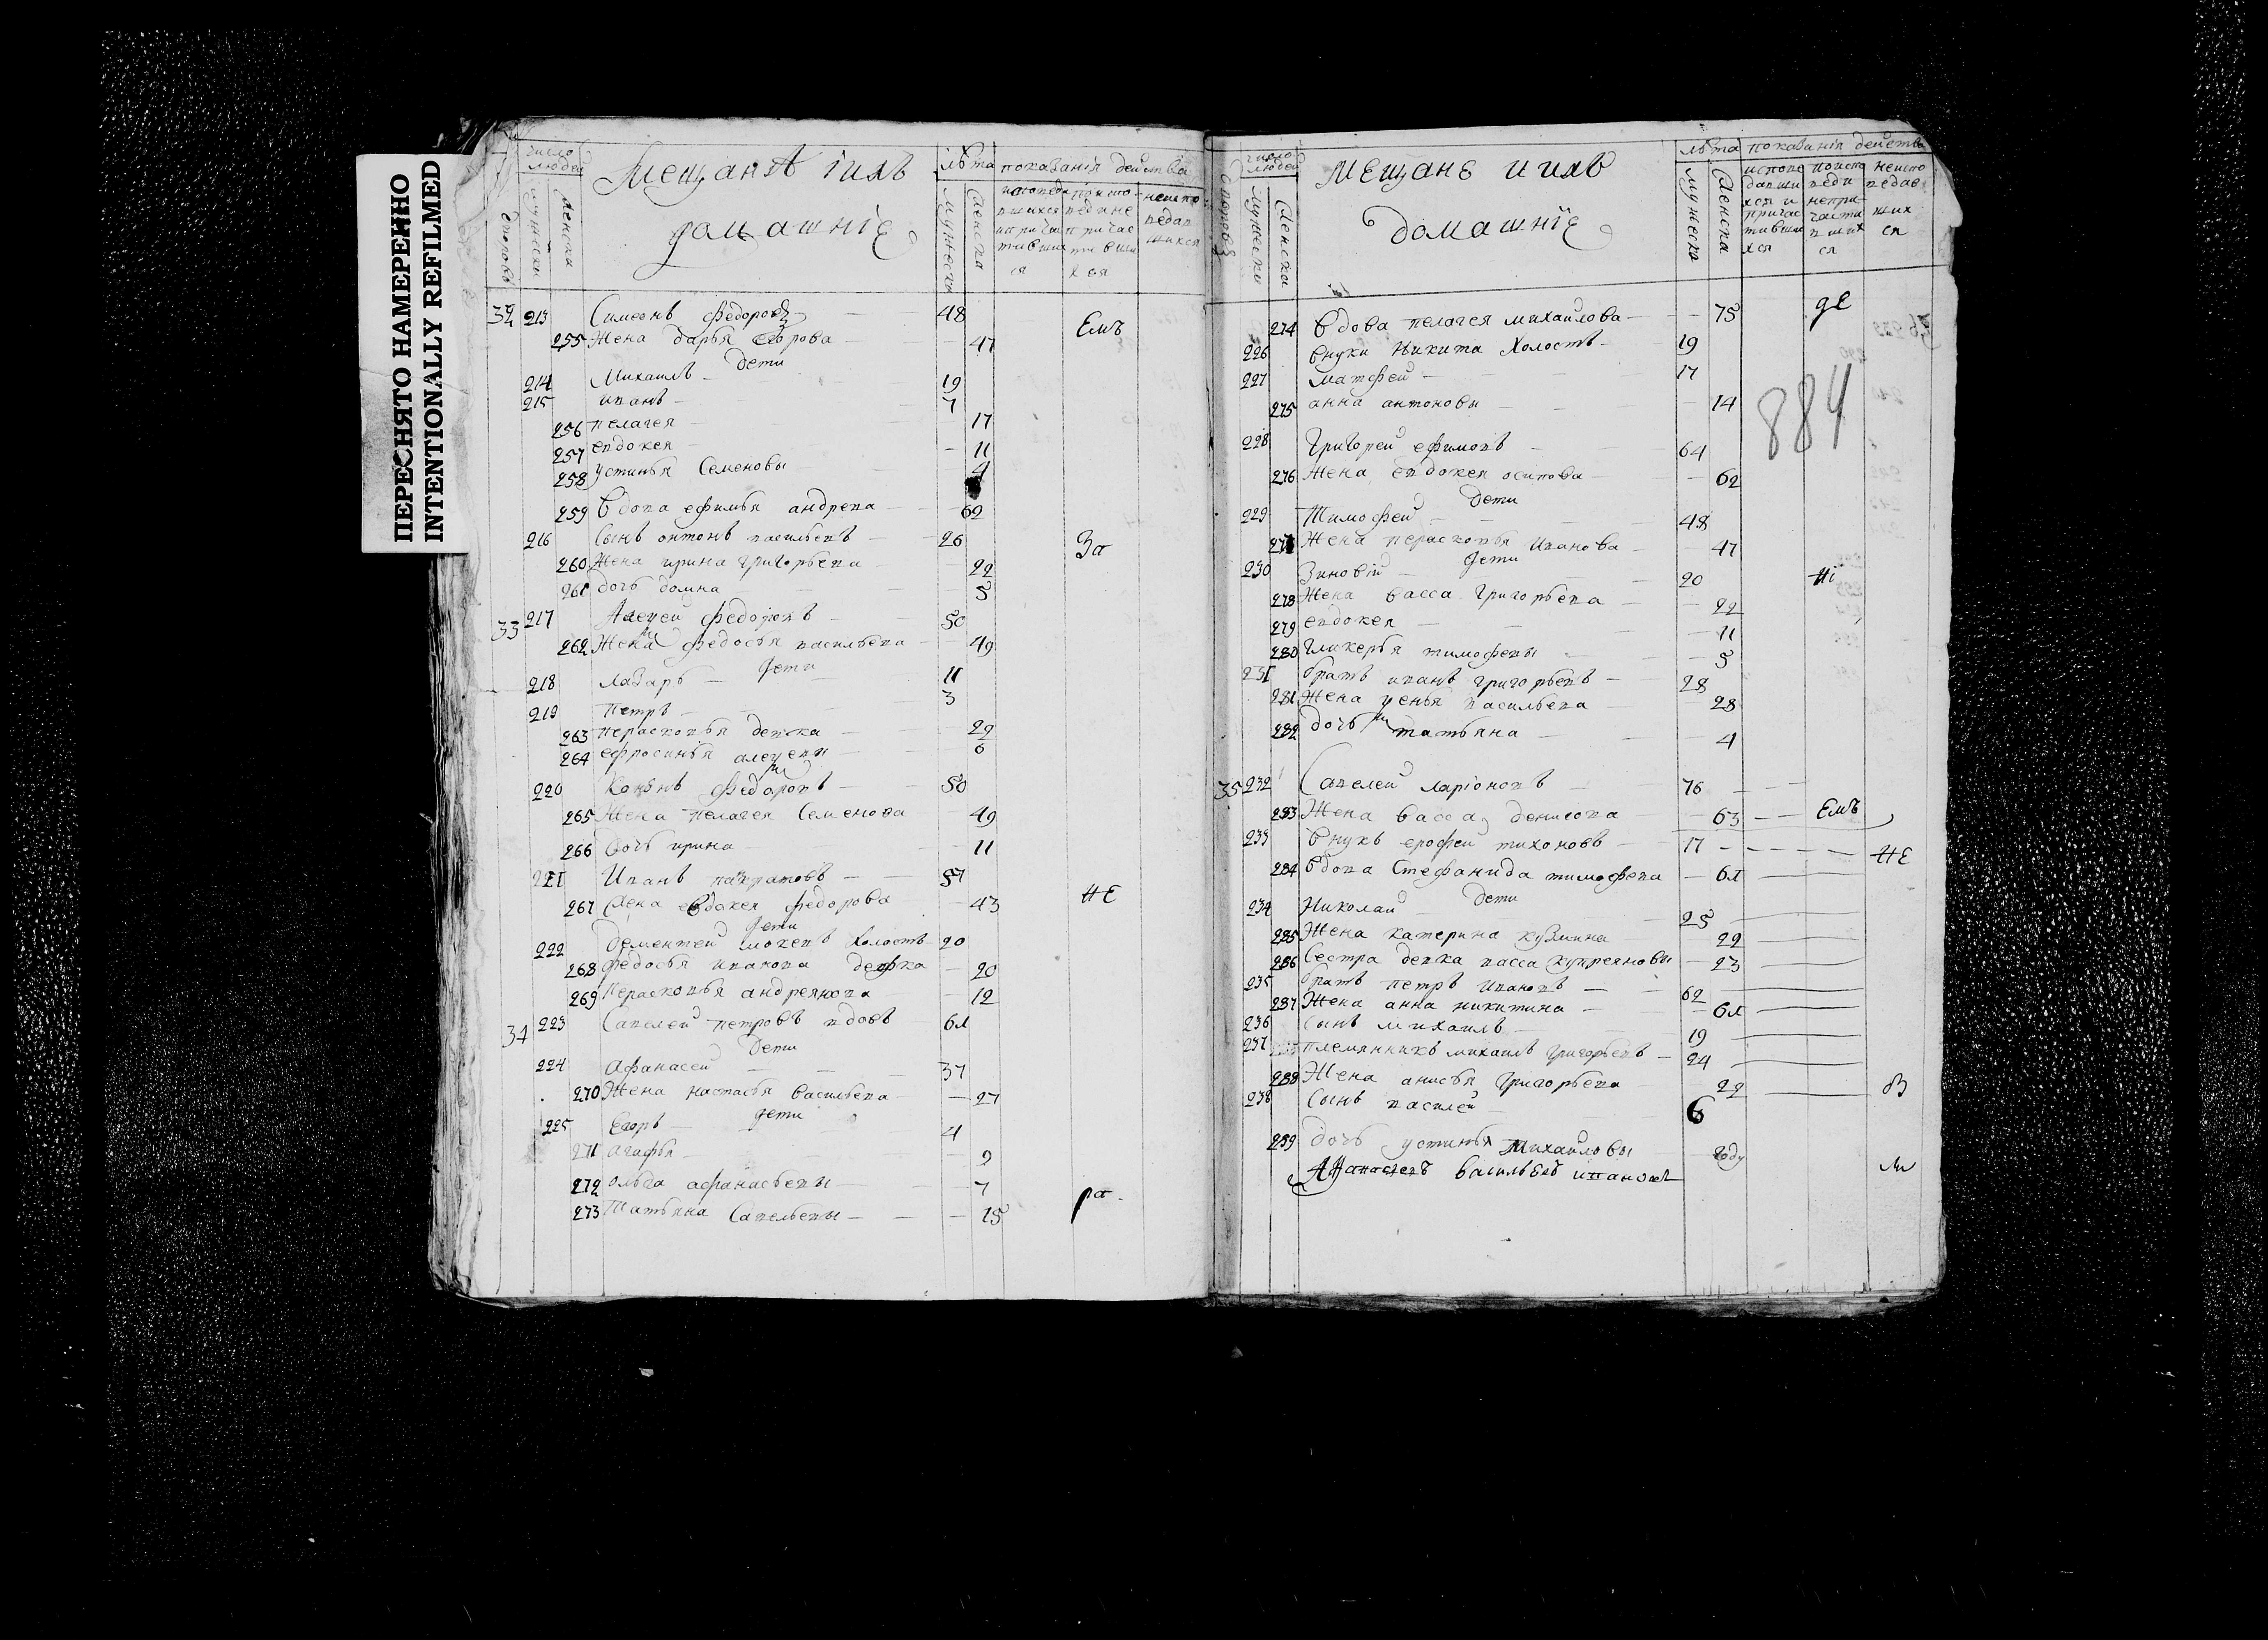 ПЕРЕСНЯТО НАМЕРЕННО
INTENTIONALLY REFILMED
число людей
Мещаня іихъ
домашніе
лѣта показанія действа
мужески
женска
32 213 Симеонъ федоровъ 48
Емъ
255 Жена дарья егорова 47
дети
214 Михаилъ 19
215 иванъ 7
256 пелагея 17
257 евдокея 11
258 устинья Семеновы 4
259 вдова ефимья андреева 62
216 Сынъ онтонъ васильевъ 26
За
260 Жена ирина григорьева 22
261 дочь домна 5
33 217 Алеѯей федоровъ 50
262 Жена федосья васильева 49
дети
218 лазарь 11
219 петръ 3
263 пераскопья девка 22
264 ефросинья алеѯеевы 6
220 федоровъ 50
265 Жена пелагея Семенова 49
266 дочь ирина 11
221 Иванъ панкратовъ 57
267 Жена евдокея федорова 43
НЕ
дети
222 дементей мокевъ холостъ 20
268 федосья иванова девка 20
269 Пераскопья андреянова 12
34 223 Савелей петровъ вдовъ 61
дети
224 Афанасей 37
270 Жена настасья васильева 27
дети
225 Егоръ 4
271 агафья 9
272 ольга афанасьевы 7
ра
273 Татьяна Савельевы 15
число людей
мещане и ихъ
домашніе
лѣта показанія действа
мужеска
женска
274 вдова пелагея михаилова 75
де
226 внуки Никита холостъ 19
227 матфей 17
884
275 анна антоновы 14
228 Григорей ефимовъ 64
276 Жена евдокея осипова 62
дети
229 Тимофей 48
277 Жена пераскопья Иванова 47
дети
230 Зиновій 20
Ні
278 Жена васса григорьева 22
279 евдокея 11
280 гликерья тимофеевы 5
231 братъ иванъ григорьевъ 28
281 Жена ѯенья васильева 28
282 дочь татьяна 4
35 232 Савелей ларіоновъ 76
283 Жена васса денисова 63
Емъ
233 внукъ ерофей тихоновъ 17
НЕ
284 вдова Стефанида тимофеева 61
дети
234 Николай 25
285 Жена катерина кузмина 22
286 Сестра девка васса купреяновы 23
235 братъ петръ Ивановъ 62
287 Жена анна никитина 61
236 Сынъ михаилъ 19
237 племянникъ михаилъ григорьевъ 24
288 Жена анисья григорьева 22
В
238 Сынъ василей 6
289 дочь устинья Михаиловы году
Афанасьевъ васильевъ ивановъ